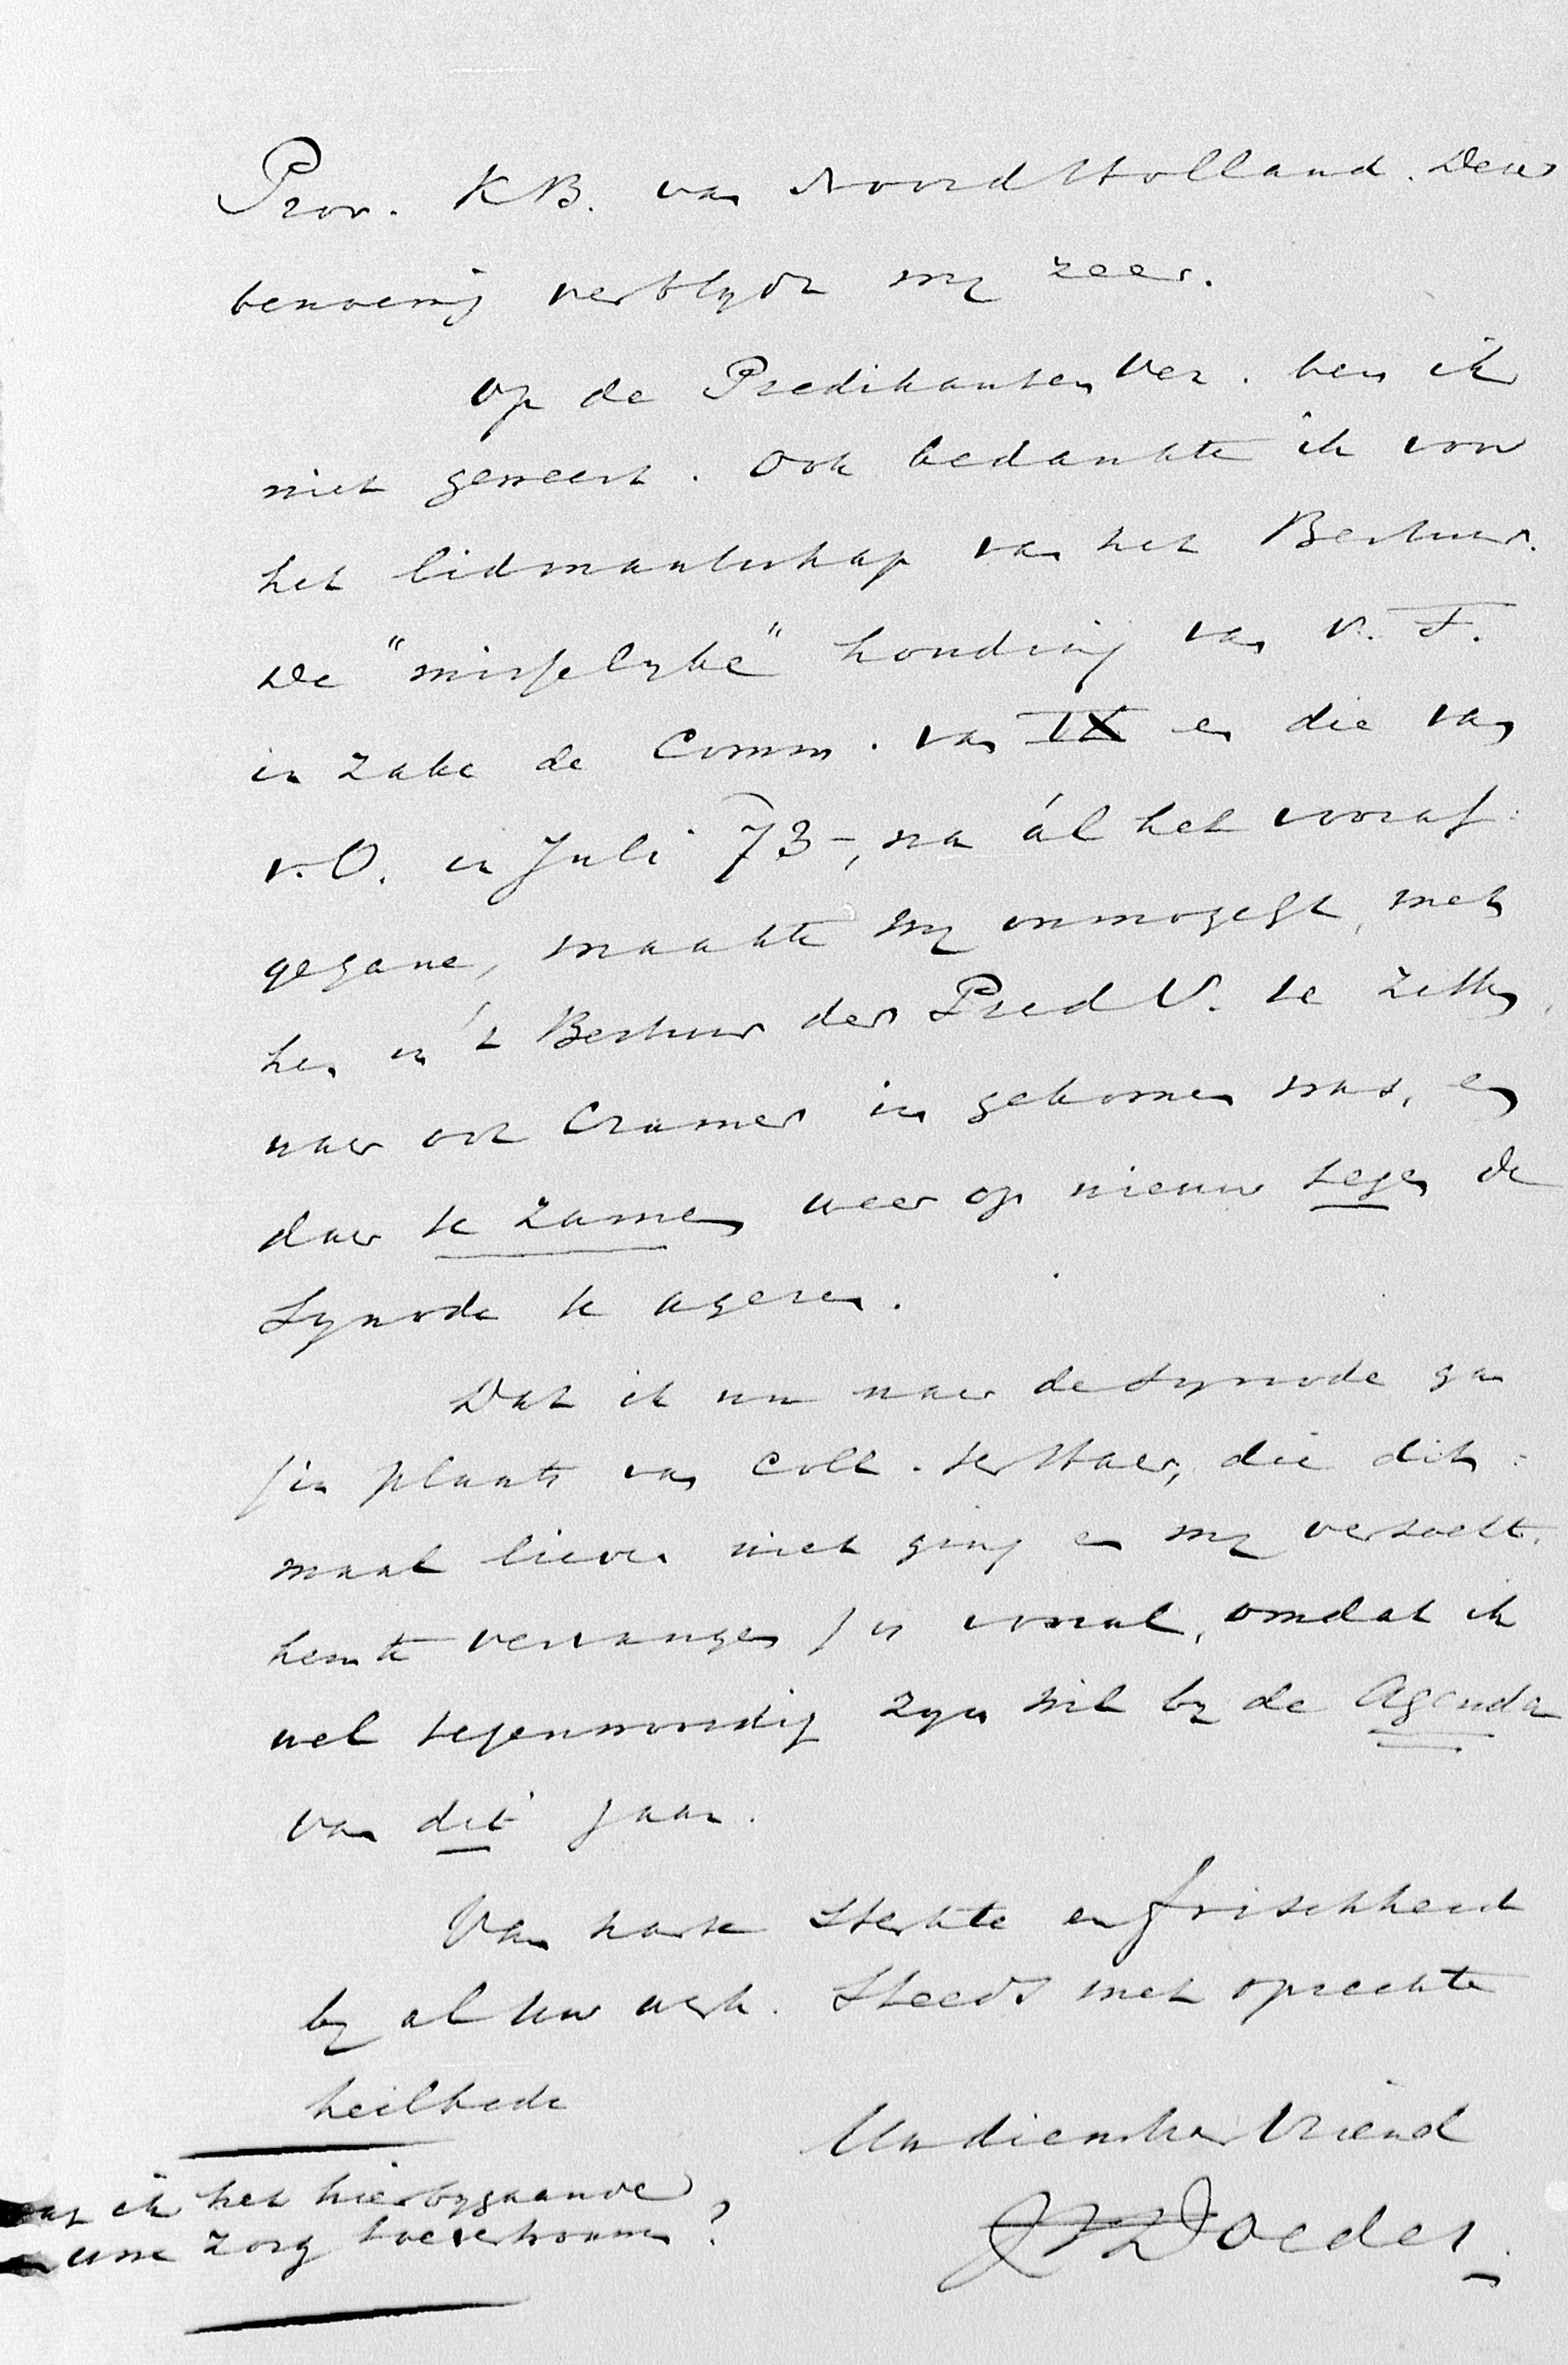 Prov. KB. van Noord Holland. Deze
benoeming verblydt my zeer.
Op de Predikanten Ver. ben ik
niet geweest. Ook bedankte ik voor
het lidmaatschap van het Bestuur.
De "misselyke" houding van v. T.
in zake de Comm. van IX en die van
v. O. in Juli 73 –, na ál het vooraf-
gegane, maakte my onmogelyk, met
hen in 't Bestuur der Pred V. te zitten,
waar ook Cramer in gekomen was, en
daar te zamen weer op nieuw tegen de
Synode te ageren.
Dat ik nu naar de Synode ga
(in plaats van Coll. ter Haar, die dit-
maal liever niet ging en my verzocht
hem te vervangen) is vooral, omdat ik
wel tegenwoordig zyn wil by de Agenda
van dit jaar.
Van harte sterkte en frischheid
by al Uw werk. Steeds met oprechte
heilbede
Uw dienstw. Vriend
JI Doedes
ik het hierbygaande
uwe zorg toevertrouwen?